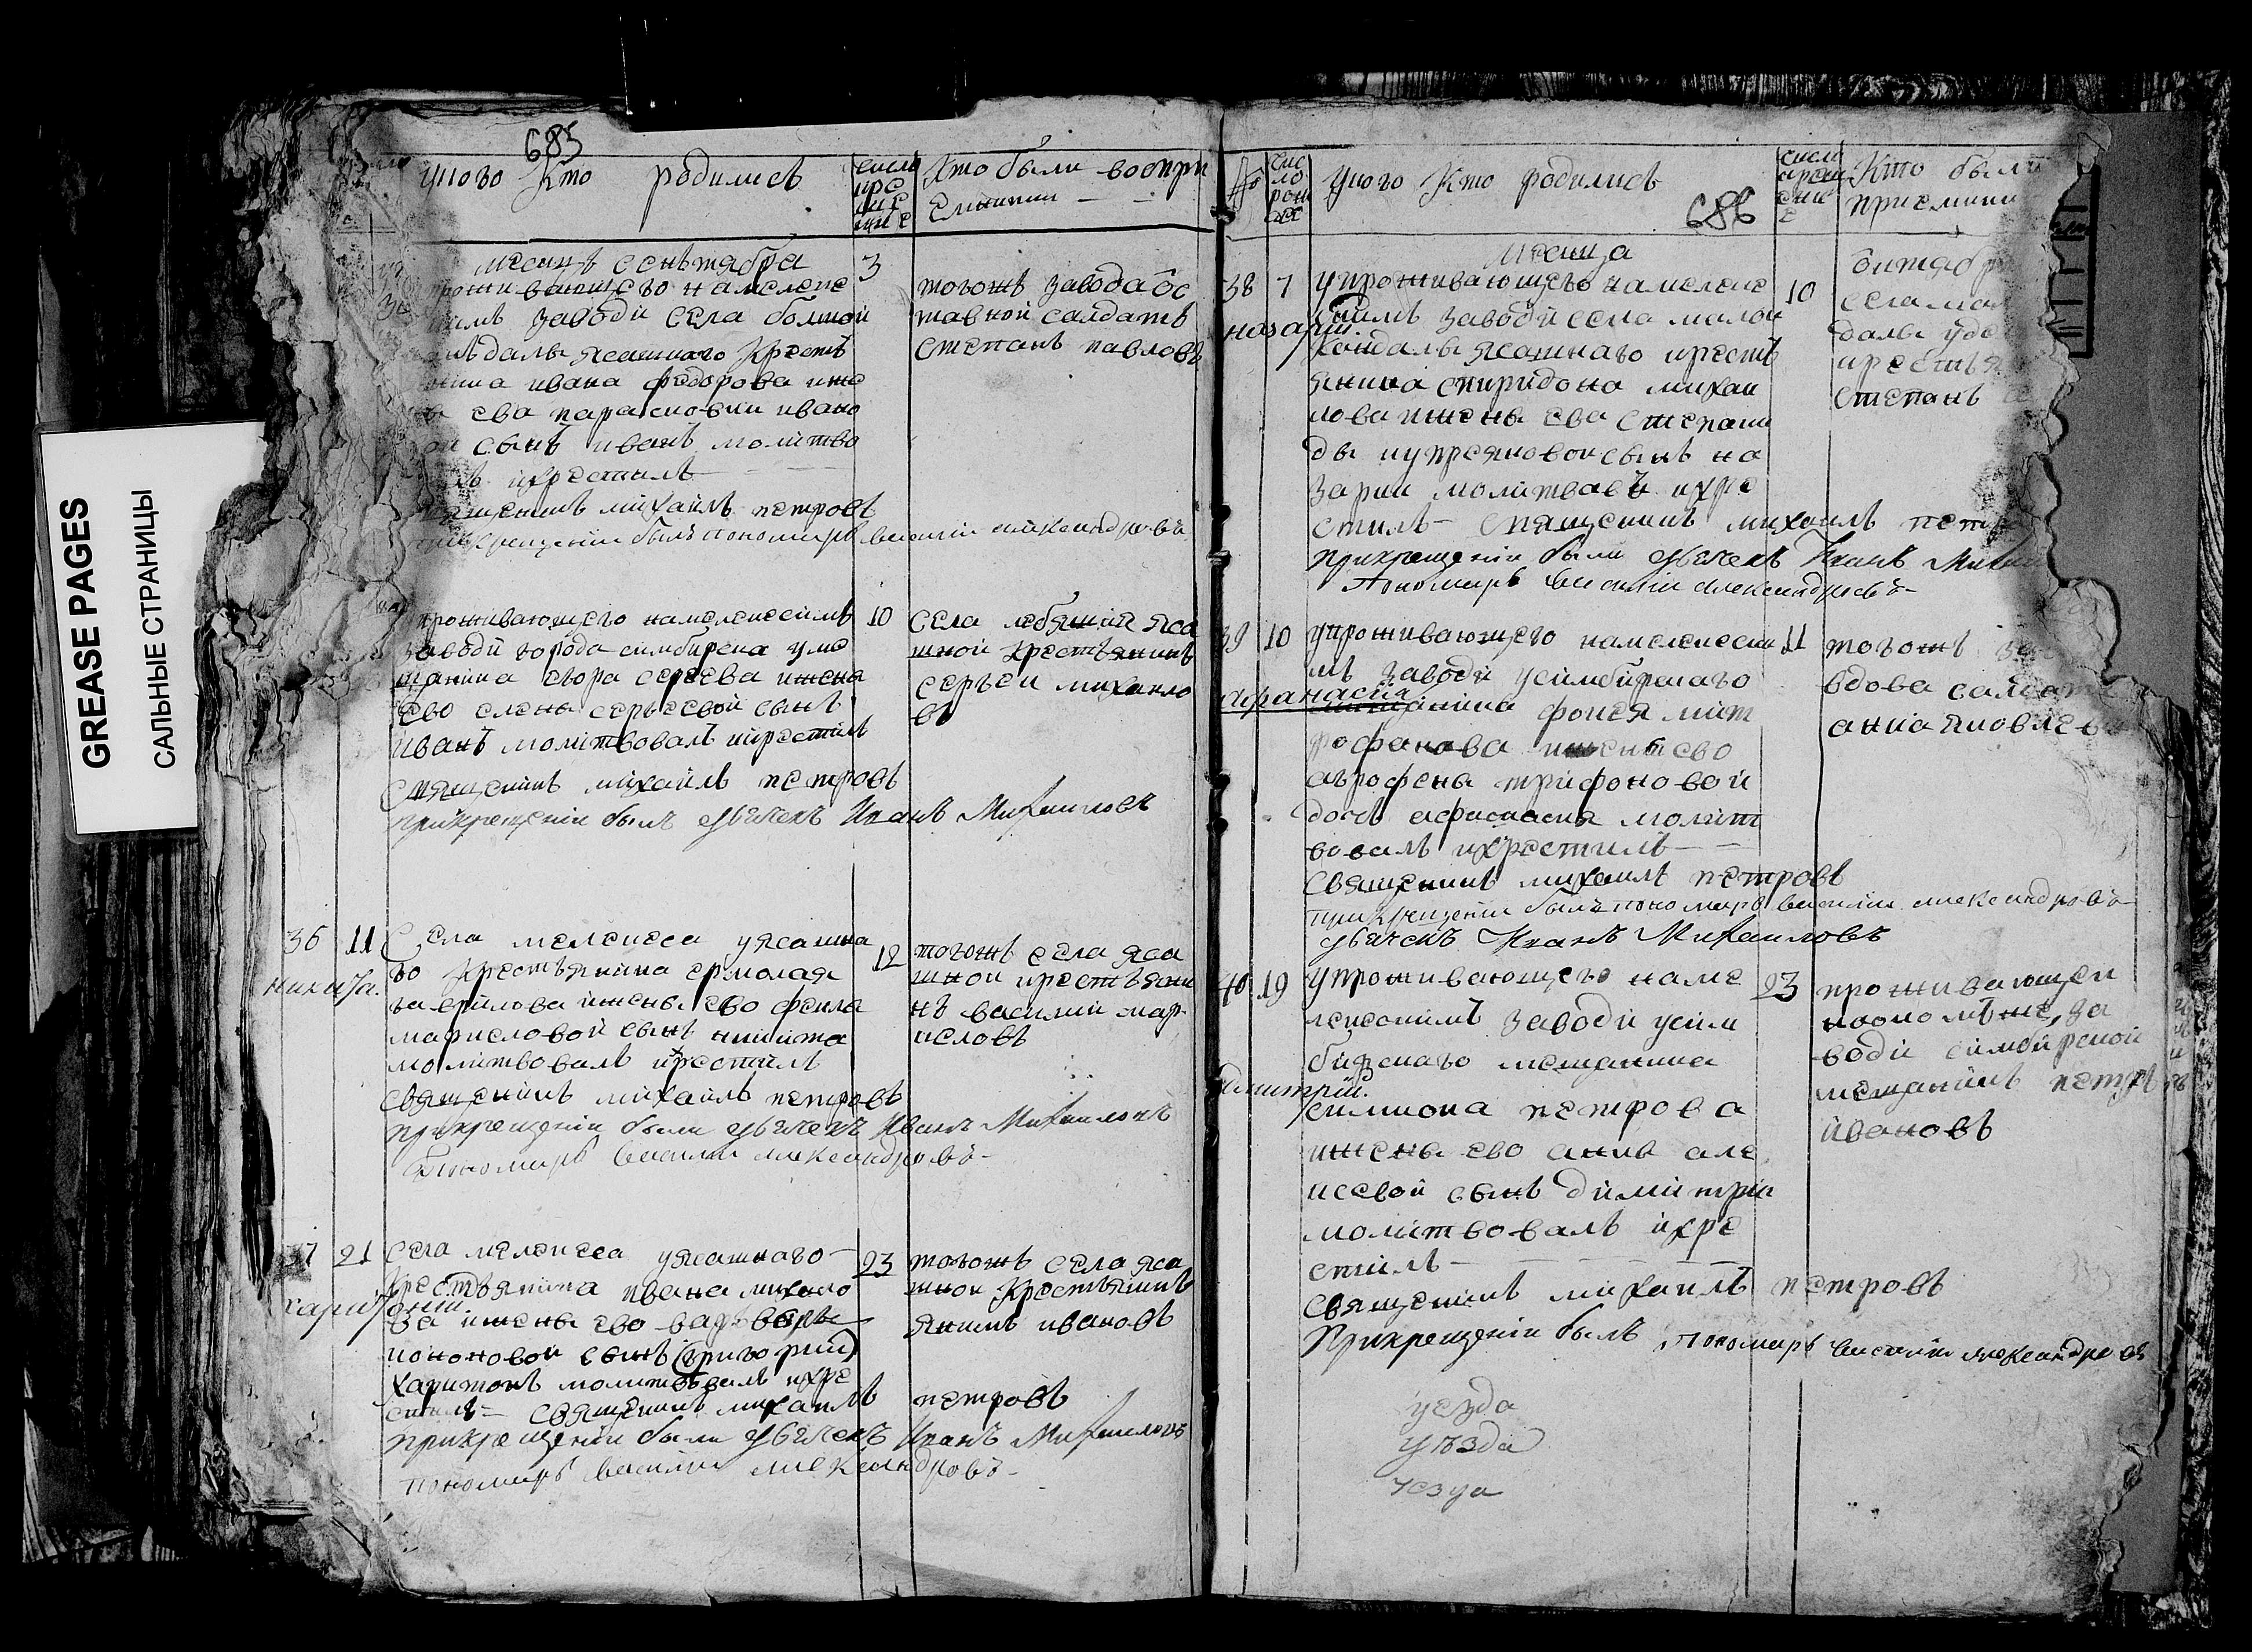 GREASE PAGES
САЛЬНЫЕ СТРАНИЦЫ
685
у ково Кто родились
число кре щение
Кто были воспри
емники
месяцъ сентября
3
проживающего намелекес
скимъ заводи села болшой
кандалы ясашного Крестъ
янина ивана федорова жены
ево парасковии ивано
вой сынъ иванъ молитво
валъ икрестилъ
священникъ михаилъ петровъ
прикрещении былъ пономарь василии александровъ
тогожъ завода от
ставной салдатъ
степанъ павловъ
проживающего намелекескимъ
заводи города симбирска уме
щанина егора сергеева ижены
ево елены сергеевой сынъ
иванъ молитвовалъ икрестилъ
священникъ михаилъ петровъ
прикрещении былъ дьячекъ Иванъ Михаиловъ
10
села лебяжий яса
шной крестьянинъ
сергеи михаило
въ
36 11
никита.
Села мелекеса уясашна
го крестьянина ермолая
гаврилова ижены ево феклы
маркеловой сынъ никита
молитвовалъ икрестилъ
священникъ михаилъ петровъ
прикрещении были дьячекъ Иванъ Михаиловъ
Пономарь василии александровъ
12
тогожъ села яса
шной крестьяни
нъ василий мар
келовъ
37 21
харитонии.
Села мелекеса уясашного
крестьянина ивана михаило
ва ижены ево варвары
кононовой сынъ (григорий)
харитонъ молитвовалъ икре
стилъ священникъ михаилъ петровъ
прикрещении были дьячекъ Иванъ Михаиловъ
пономарь василии александровъ
23
тогожъ села яса
шной крестьянинъ
якимъ ивановъ
686
№
чис ло рож
у ково Кто родились
число креще ние
Кто были
приемники
месяца
октября
38 7
назарий.
упроживающего намелекес
скимъ заводи села малой
кандалы ясашнаго крестъ
янина спиридона михаи
лова ижены ево степани
ды купреяновой сынъ на
зарии молитвовалъ икре
стилъ священникъ михаилъ петр
прикрещении были дьячекъ Иванъ Михаи
Пономарь василии александровъ
10
села мал
далы уде
крестья
степанъ
39 10
афанасия
упроживающего намелекески
мъ заводи усимбирскаго
мещанина фокея мит
рофанова ижены ево
агрофены трифоновой
дочь афанасия молит
вовалъ икрестилъ
священникъ михаилъ петровъ
прикрещении былъ пономарь василии александровъ
дьячекъ Иванъ Михаиловъ
11
тогожъ за
вдова салдатс
анна яковлева
40 19
димитрий.
упроживающего наме
лекескимъ заводи усим
бирскаго мещанина
симиона петрова
ижены ево анны але
ксевой сынъ димитрии
молитвовалъ икре
стилъ
священникъ михаилъ петровъ
Прикрещении былъ пономарь василии александровъ
23
проживающеи
за
води симбирской
мещанинъ петръ
ивановъ
уезда
уѣзда